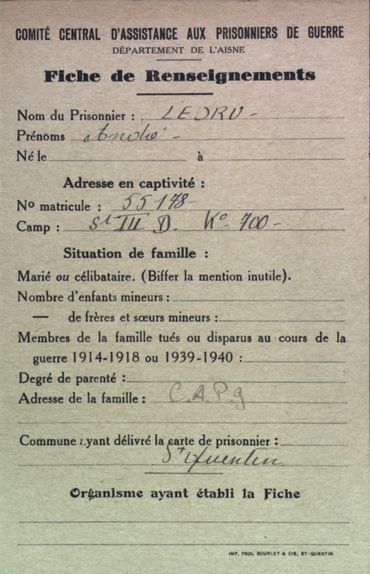 COMITÉ CENTRAL D'ASSISTANCE AUX PRISONNIERS DE GUERRE
DÉPARTEMENT DE L'AISNE
Fiche de Renseignements
Nom du Prisonnier : LEDRU -
Prénoms André -
Né le à
Adresse en captivité :
No matricule : 55178
Camp : St III D. Ko. 700 -
Situation de famille :
Marié ou célibataire. (Biffer la mention inutile).
Nombre d'enfants mineurs :
— de frères et sœurs mineurs :
Membres de la famille tués ou disparus au cours de la
guerre 1914-1918 ou 1939-1940 :
Degré de parenté :
Adresse de la famille : C.A.P.G
Commune ayant délivré la carte de prisonnier :
St Quentin
Organisme ayant établi la Fiche
IMP. PAUL BOURLET & CIE, ST-QUENTIN